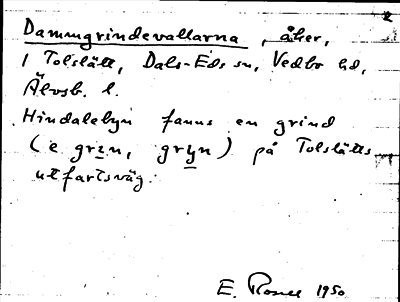 2
Dammgrindevallarna, åker,
1 Tolslätt, Dals-Eds sn, Vedbo hd,
Älvsb. l.
Hindalebyn fanns en grind
(e grɪn, gryn) på Tolslätts
utfartsväg.
E. 1950